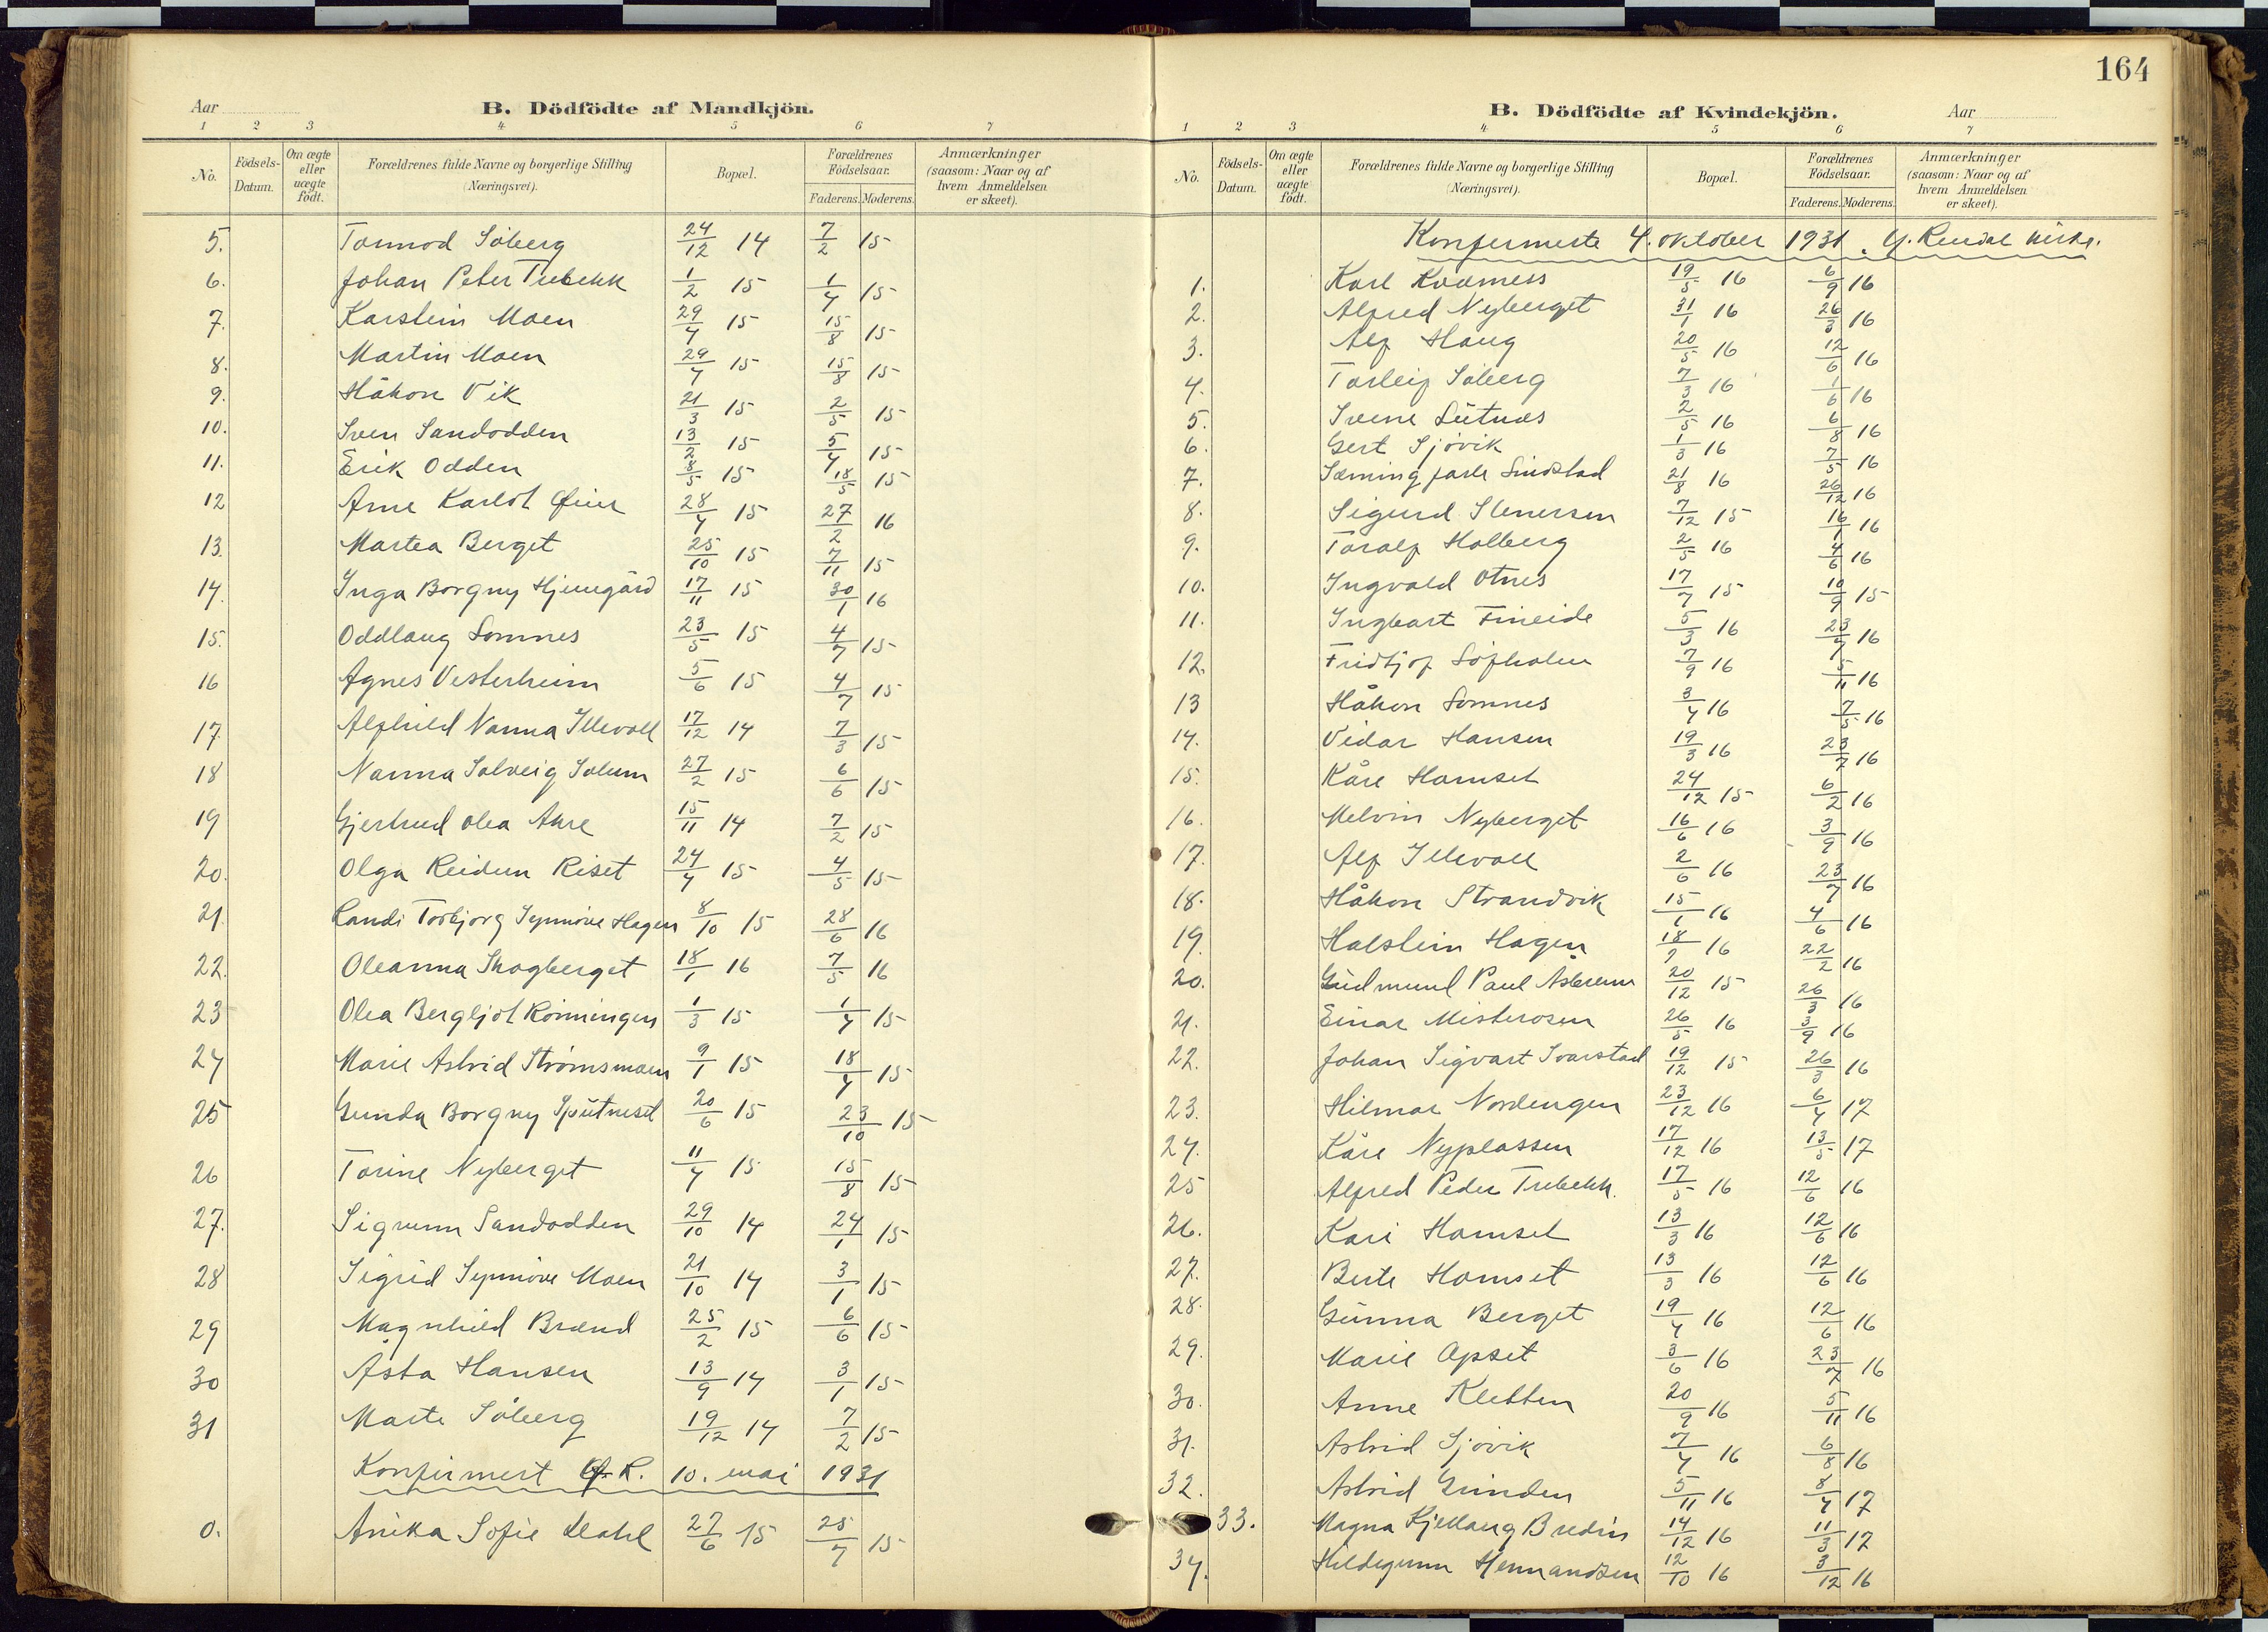 Aar
B. Dödfödte af Mandkjön.
1 2 3 4 5 6 7
No.
Födsels-Datum.
Om ægte eller uægte födt.
Forældrenes fulde Navne og borgerlige Stilling (Næringsvei).
Bopæl.
Forældrenes Födselsaar.
Faderens. Moderens.
Anmærkninger (saasom: Naar og af hvem Anmeldelsen er skeet).
5. Tormod Söberg 24/12 14 7/2 15
6. Johan Peter Trebekk 1/2 15 1/4 15
7. Karstein Moen 29/4 15 15/8 15
8. Martin Moen 29/4 15 15/8 15
9. Håkon Vik 21/3 15 2/5 15
10. Sven Sandodden 13/2 15 5/4 15
11. Erik Odden 8/5 15 18/5 15
12 Arne Karlot 28/4 15 27/2 16
13. Martea Berget 25/10 15 7/11 15
14. Inga Borgny Hjemgård 17/11 15 30/1 16
15. Oddlaug Lomnes 23/5 15 4/7 15
16 Agnes Vesterheim 5/6 15 4/7 15
17. Alfhild Nanna Illevoll 17/12 14 7/3 15
18 Nanna Solveig Solum 27/2 15 6/6 15
19 Gjertrud Olea Akre 15/11 14 7/2 15
20. Olga Reidun Riset 24/4 15 4/5 15
21. Randi Torbjørg Synnöve Hagen 8/10 15 28/6 16
22. Oleanna Skogberget 18/1 16 7/5 16
23 Olea Bergljot Rönningen 1/3 15 1/4 15
24 Marie Astrid Strömsmoen 9/1 15 18/4 15
25 Gunda Borgny 20/6 15 23/10 15
26 Torine Nyberget 11/4 15 15/8 15
27. Sigrunn Sandodden 29/10 14 24/1 15
28 Sigrid Synnöve Moen 21/10 14 3/1 15
29 Magnhild Brænd 25/2 15 6/6 15
30 Asta Hansen 13/9 14 3/1 15
31 Marte Söberg 19/12 14 7/2 15
Konfirmert R. 10. mai 1931
0. Anika Sofie Dahl 27/6 15 25/7 15
164
B. Dödfödte af Kvindekjön.
Aar
1 2 3 4 5 6 7
No.
Födsels-Datum.
Om ægte eller uægte födt.
Forældrenes fulde Navne og borgerlige Stilling (Næringsvei).
Bopæl.
Forældrenes Födselsaar.
Faderens. Moderens.
Anmærkninger (saasom: Naar og af hvem Anmeldelsen er skeet).
Konfirmerte 4. oktober 1931. Y. Rendal kirke.
1. Karl Kvamess 19/5 16 6/9 16
2. Alfred Nyberget 31/1 16 26/3 16
3. Alf Haug 20/5 16 12/6 16
4. Torleif Söberg 7/3 16 1/6 16
5. Svene Lutnæs 2/5 16 6/8 16
6. Gert Sjövik 1/3 16 7/5 16
7. Sæming Jarle 21/8 16 26/12 16
8. Sigurd Stenersen 7/12 15 16/1 16
9. Toralf Holberg 2/5 16 4/6 16
10. Ingvald Otnes 17/7 15 10/9 15
11. Ingbart Fineide 5/3 16 23/7 16
12. Fridtjof Löfholen 7/9 16 5/11 16
13 Håkon Lomnes 3/4 16 7/5 16
14. Vidar Hansen 19/3 16 23/7 16
15. Kåre Hornset 24/12 15 6/2 16
16. Melvin Nyberget 16/6 16 3/9 16
17. Alf Illevoll 2/6 16 23/7 16
18. Håkon Strandvik 15/1 16 4/6 16
19. Halstein Hagen 18/7 16 22/2 16
20. Gudmund Paul 20/12 15 26/3 16
21. Einar Misterosen 26/5 16 3/9 16
22. Johan Sigvart Svarstad 19/12 15 26/3 16
23. Hilmar Nordengen 23/12 16 6/4 17
24. Kåre Nyplassen 17/12 16 13/5 17
25 Alfred Peder Trebekk. 17/5 16 12/6 16
26. Kari Hornset 13/3 16 12/6 16
27. Berte Hornset 13/3 16 12/6 16
28. Gunna Berget 19/4 16 12/6 16
29. Marie Opset 3/6 16 23/7 16
30. Anne Kletten 20/9 16 5/11 16
31. Astrid Sjövik 7/4 16 6/8 16
32. Astrid Grinden 5/11 16 8/4 17
33. Magna Kjellaug Bredin 14/12 16 11/3 17
34. Hildegunn Hermandsen 12/10 16 3/12 16